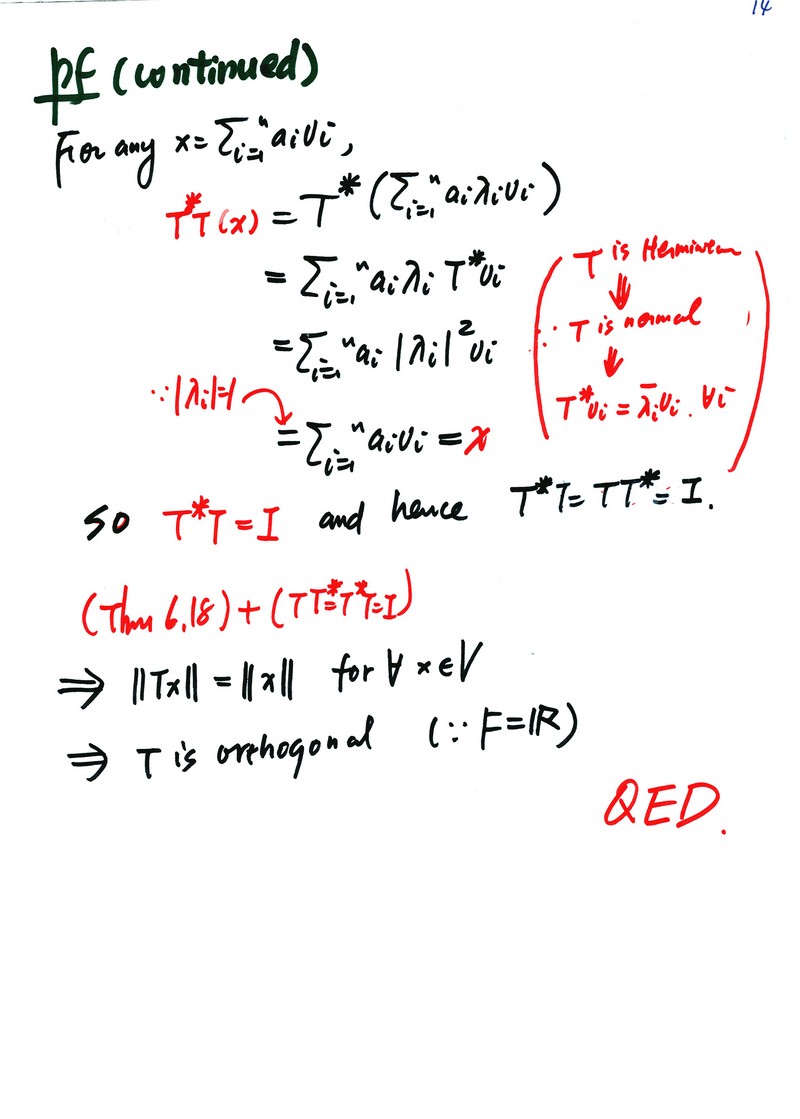 14
pf (continued)
For any x = ∑ᵢ₌₁ⁿ aᵢvᵢ,
T*T(x) = T*(∑ᵢ₌₁ⁿ aᵢλᵢvᵢ)
= ∑ᵢ₌₁ⁿ aᵢλᵢ T*vᵢ
= ∑ᵢ₌₁ⁿ aᵢ |λᵢ|² vᵢ
( ∵ T is Hermitian
⇓
T is normal
⇓
T*vᵢ = λ̄ᵢvᵢ. ∀i )
∵ |λᵢ|=1
= ∑ᵢ₌₁ⁿ aᵢvᵢ = x
so T*T = I and hence T*T = TT* = I.
(Thm 6.18) + (TT*=T*T=I)
⇒ ||Tx|| = ||x|| for ∀ x ∈ V
⇒ T is orthogonal (∵ F=ℝ)
QED.